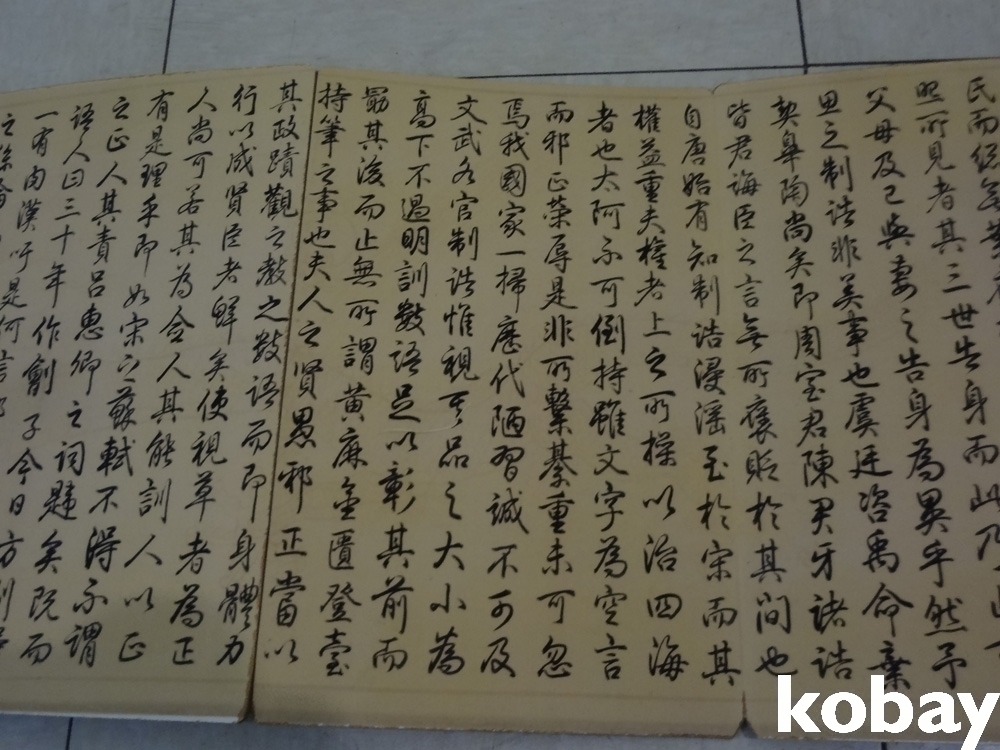 民而
照所見者其三世告身而此乃
父母及己與妻之告身為異乎然予
思之制誥非美事也虞廷咨禹命棄
契皋陶尚矣即周室君陳君牙諸誥
皆君誨臣之言無所褒貶於其間也
自唐始有知制誥浸淫至於宋而其
權益重夫權者上之所操以治四海
者也太阿不可倒持雖文字為空言
而邪正榮辱是非所繫綦重未可忽
焉我國家一掃歷代陋習誠不可及
文武各官制誥惟視其品之大小為
高下不過明訓數語足以彰其前而
勗其後而止無所謂黃麻金匱登臺
持筆之事也夫人之賢愚邪正當以
其政蹟觀之敖之數語而即身體力
行以成賢臣者鮮矣使視草者為正
人尚可若其為僉人其能訓人以正
有是理乎即如宋之蘇軾不得不謂
之正人其責呂惠卿之詞韙矣既而
語人曰三十年作劊子今日方剮
一有肉漢吁是何言
kobay